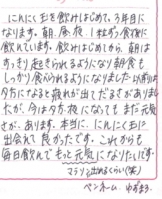 にんにく玉を飲みはじめて、3年目に
なります。朝、昼、夜、1粒ずつ食後に
飲んでいます。飲みはじめてから、朝は
すっきり起きられるようになり朝食も
しっかり食べられるようになりました。以前は
夕方になると疲れが出てだるさがありまし
たが、今は夕方、夜になってもまだ元気
さが、あります。本当に、にんにく玉に
出会えて良かったです。これからも
毎日飲んでもっと元気になりたいです。
マラソン出れるくらい(笑)
ペンネーム ゆずまる